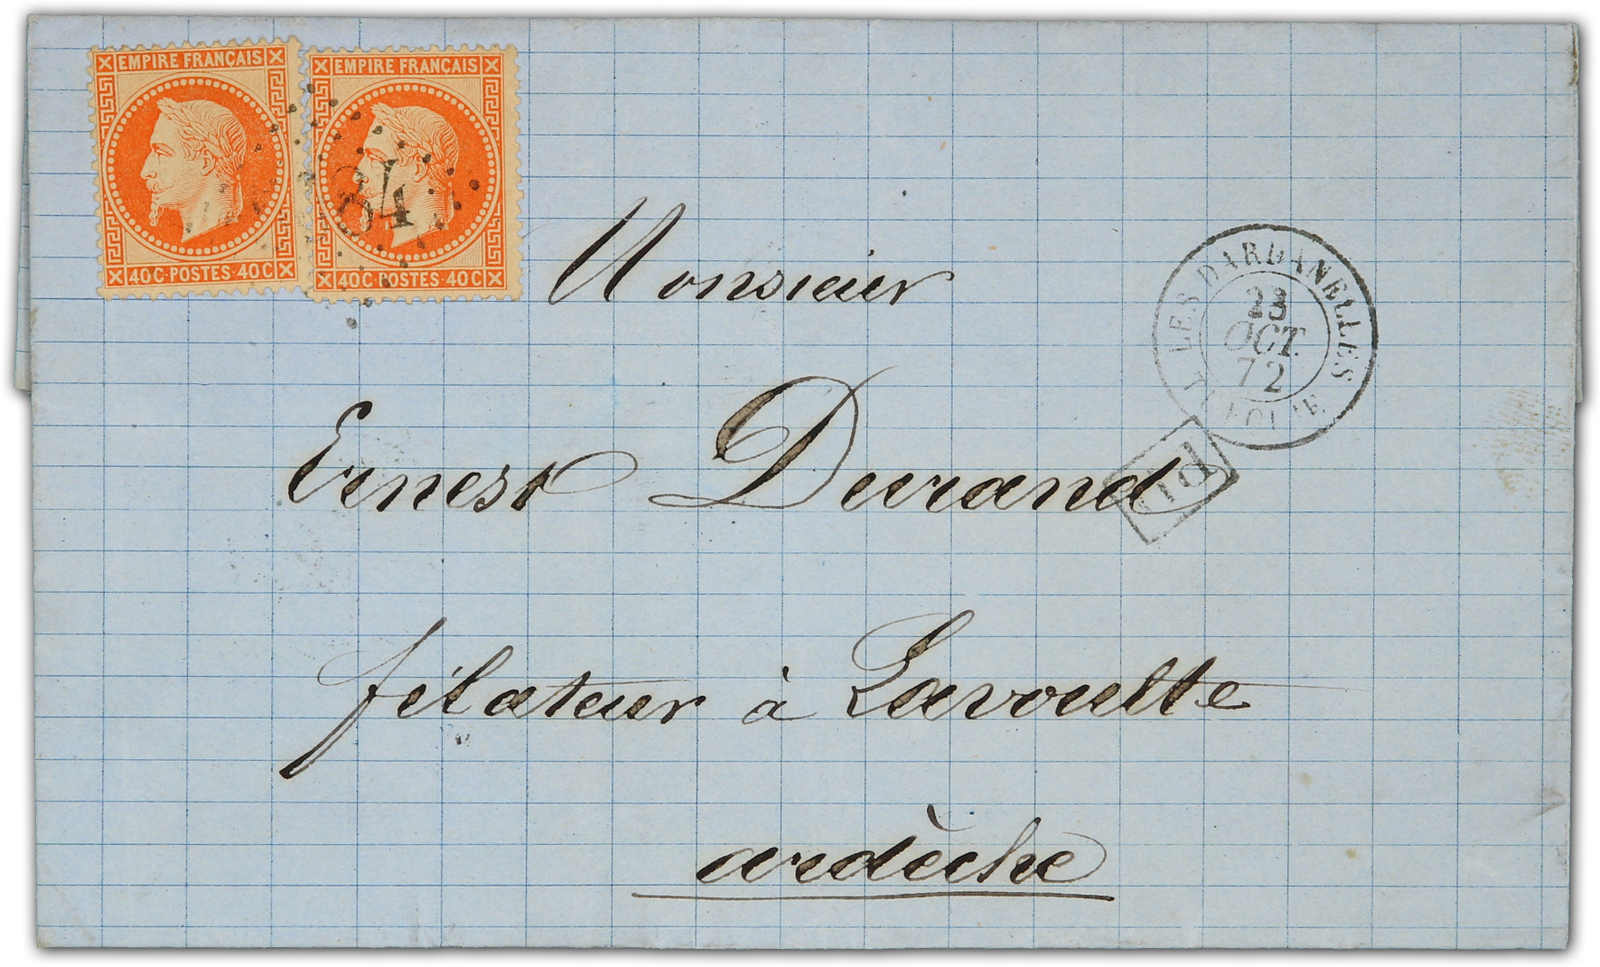 EMPIRE FRANÇAIS
40C·POSTES·40C
EMPIRE FRANÇAIS
40C·POSTES·40C
84
LES DARDANELLES
23
OCT.
72
Monsieur
Ernest Durand
filateur à Lavoulte
ardèche